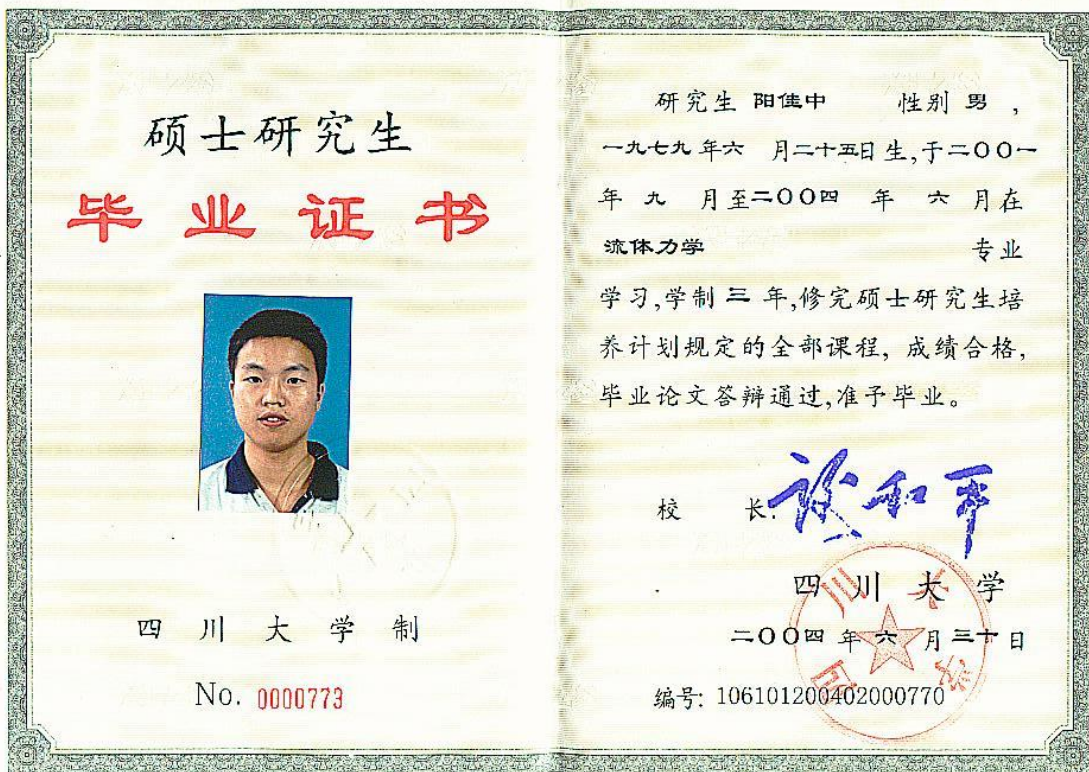 硕士研究生
毕业证书
四川大学制
No. 0000773
研究生 阳佳中 性别 男,
一九七九年六 月二十五日生,于二〇〇一
年 九 月至二〇〇四 年 六 月在
流体力学 专业
学习,学制 三 年,修完硕士研究生培
养计划规定的全部课程, 成绩合格,
毕业论文答辩通过,准予毕业。
校 长: 谢和平
四川大学
二〇〇四 年 六 月 三十日
编号: 106101200402000770
四川大学